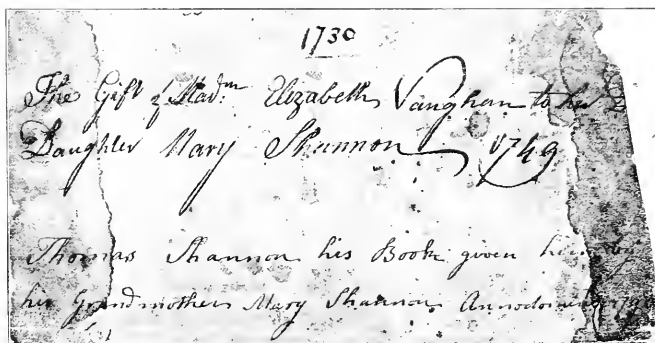 1730
The Gift of Madm: Elizabeth Vaughan to her
Daughter Mary Shannon 1749
Thomas Shannon his Book given him by
his Grandmother Mary Shannon Annodomini